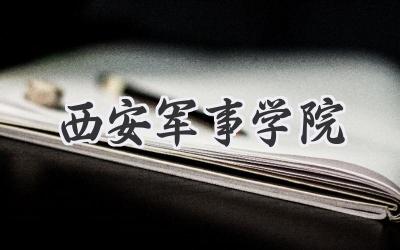 西安军事学院